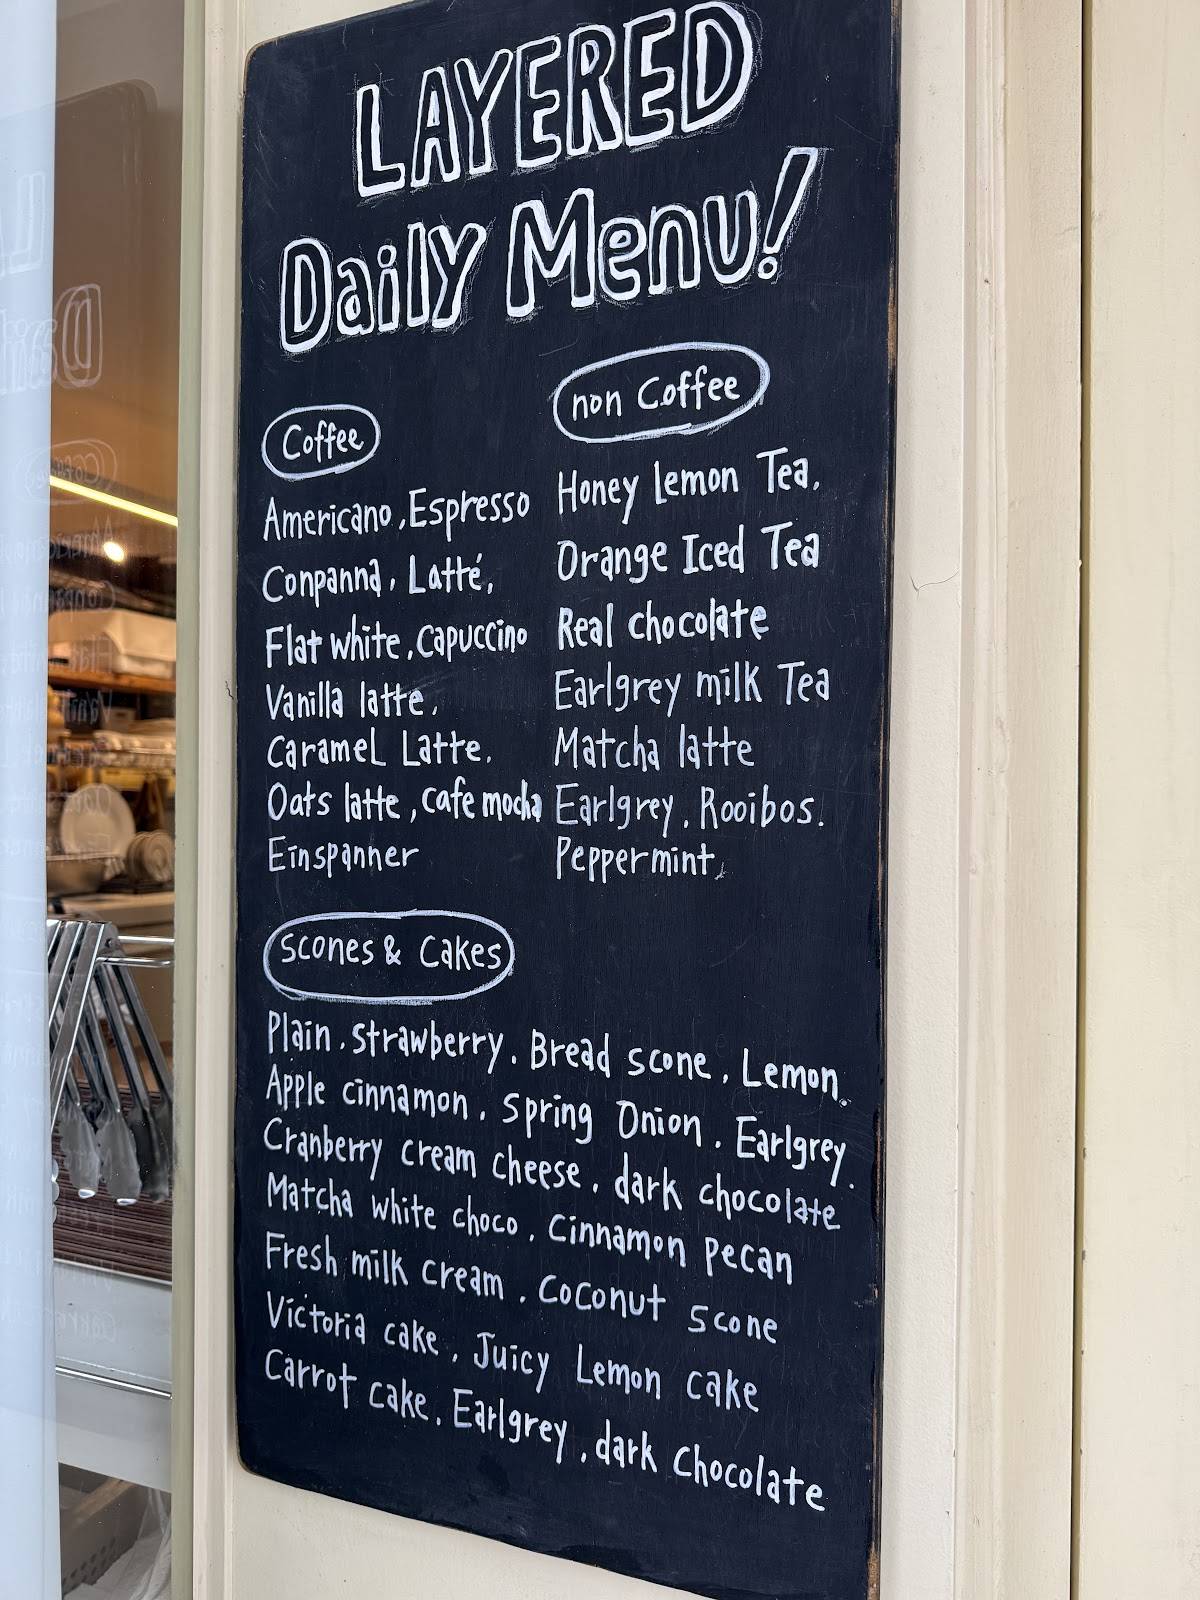 LAYERED
Daily Menu!
Coffee
Americano, Espresso
Conpanna, Latté,
Flat white, Capuccino
Vanilla latte,
Caramel Latte.
Oats latte, cafe mocha
Einspanner
non Coffee
Honey Lemon Tea.
Orange Iced Tea
Real chocolate
Earlgrey milk Tea
Matcha latte
Earlgrey, Rooibos.
Peppermint,
Scones & Cakes
Plain, strawberry. Bread scone, Lemon.
Apple cinnamon. Spring Onion. Earlgrey.
Cranberry cream cheese, dark chocolate
Matcha white choco, Cinnamon pecan
Fresh milk cream, Coconut Scone
Victoria cake, Juicy Lemon cake
Carrot cake. Earlgrey, dark Chocolate